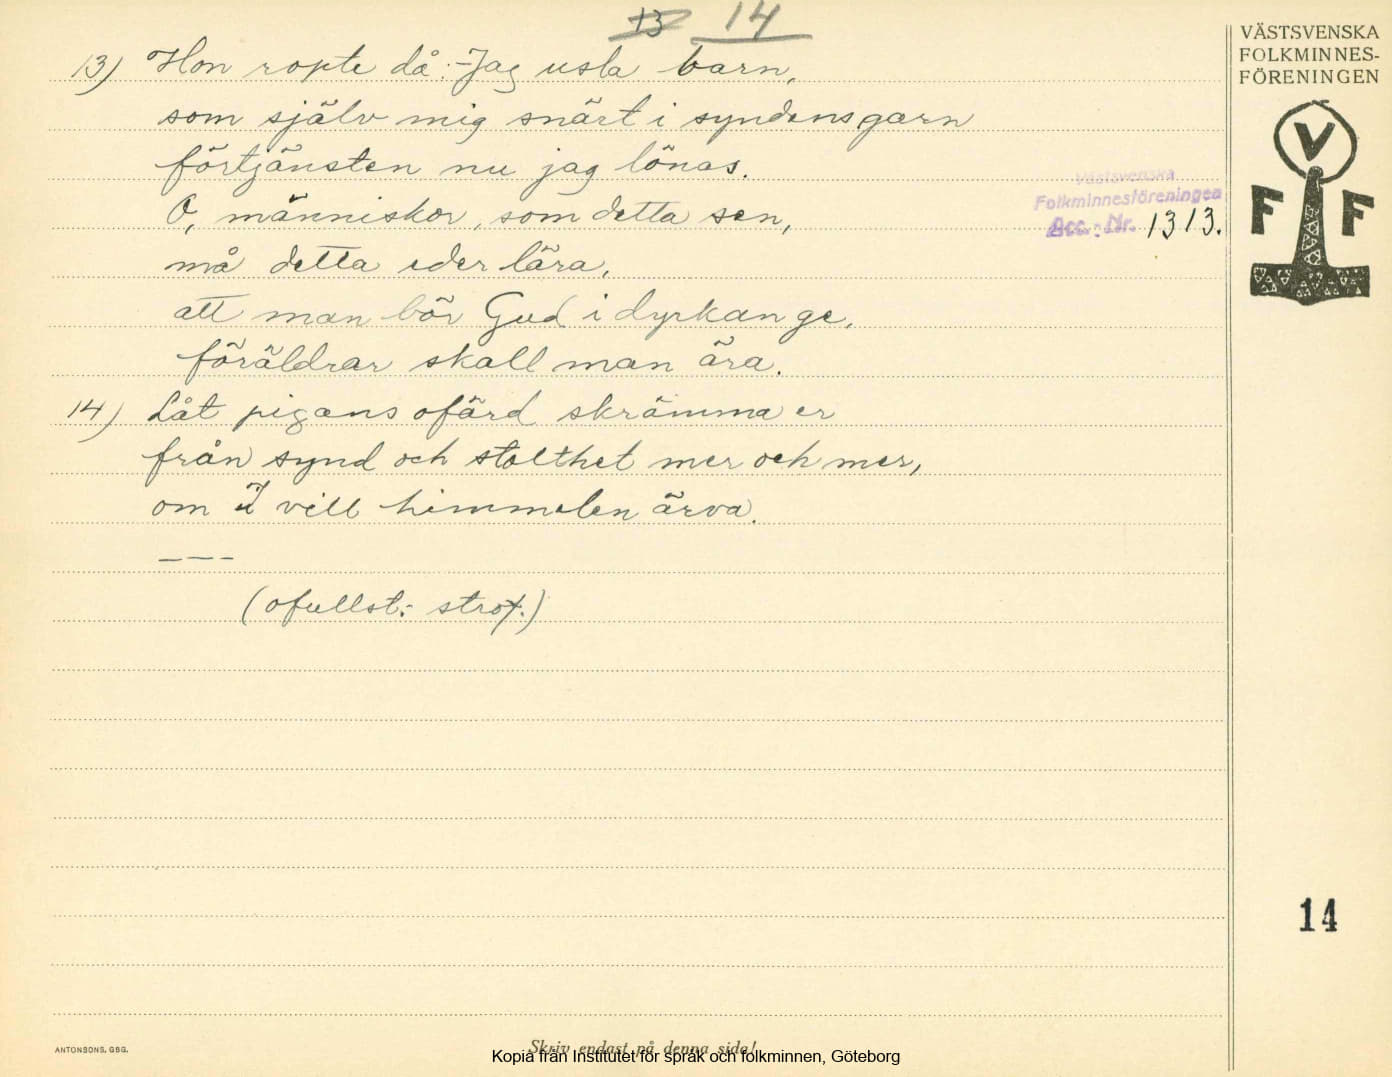 13 14
13) Hon ropte då: -Jag usla barn,
som själv mig snärt i syndens garn
förtjänsten nu jag lönas.
O, människor, som detta sen,
må detta eder lära,
att man bör Gud i dyrkan ge,
föräldrar skall man ära.
14) Låt pigans ofärd skrämma er
från synd och stolthet mer och mer,
om I vill himmelen ärva.
---
(ofullst:- strof.)
Västsvenska
Folkminnesföreningen
Acc. Nr. 1313.
VÄSTSVENSKA
FOLKMINNES-
FÖRENINGEN
V
F F
14
ANTONSONS, GBG.
Skriv endast på denna sida!
Kopia från Institutet för språk och folkminnen, Göteborg